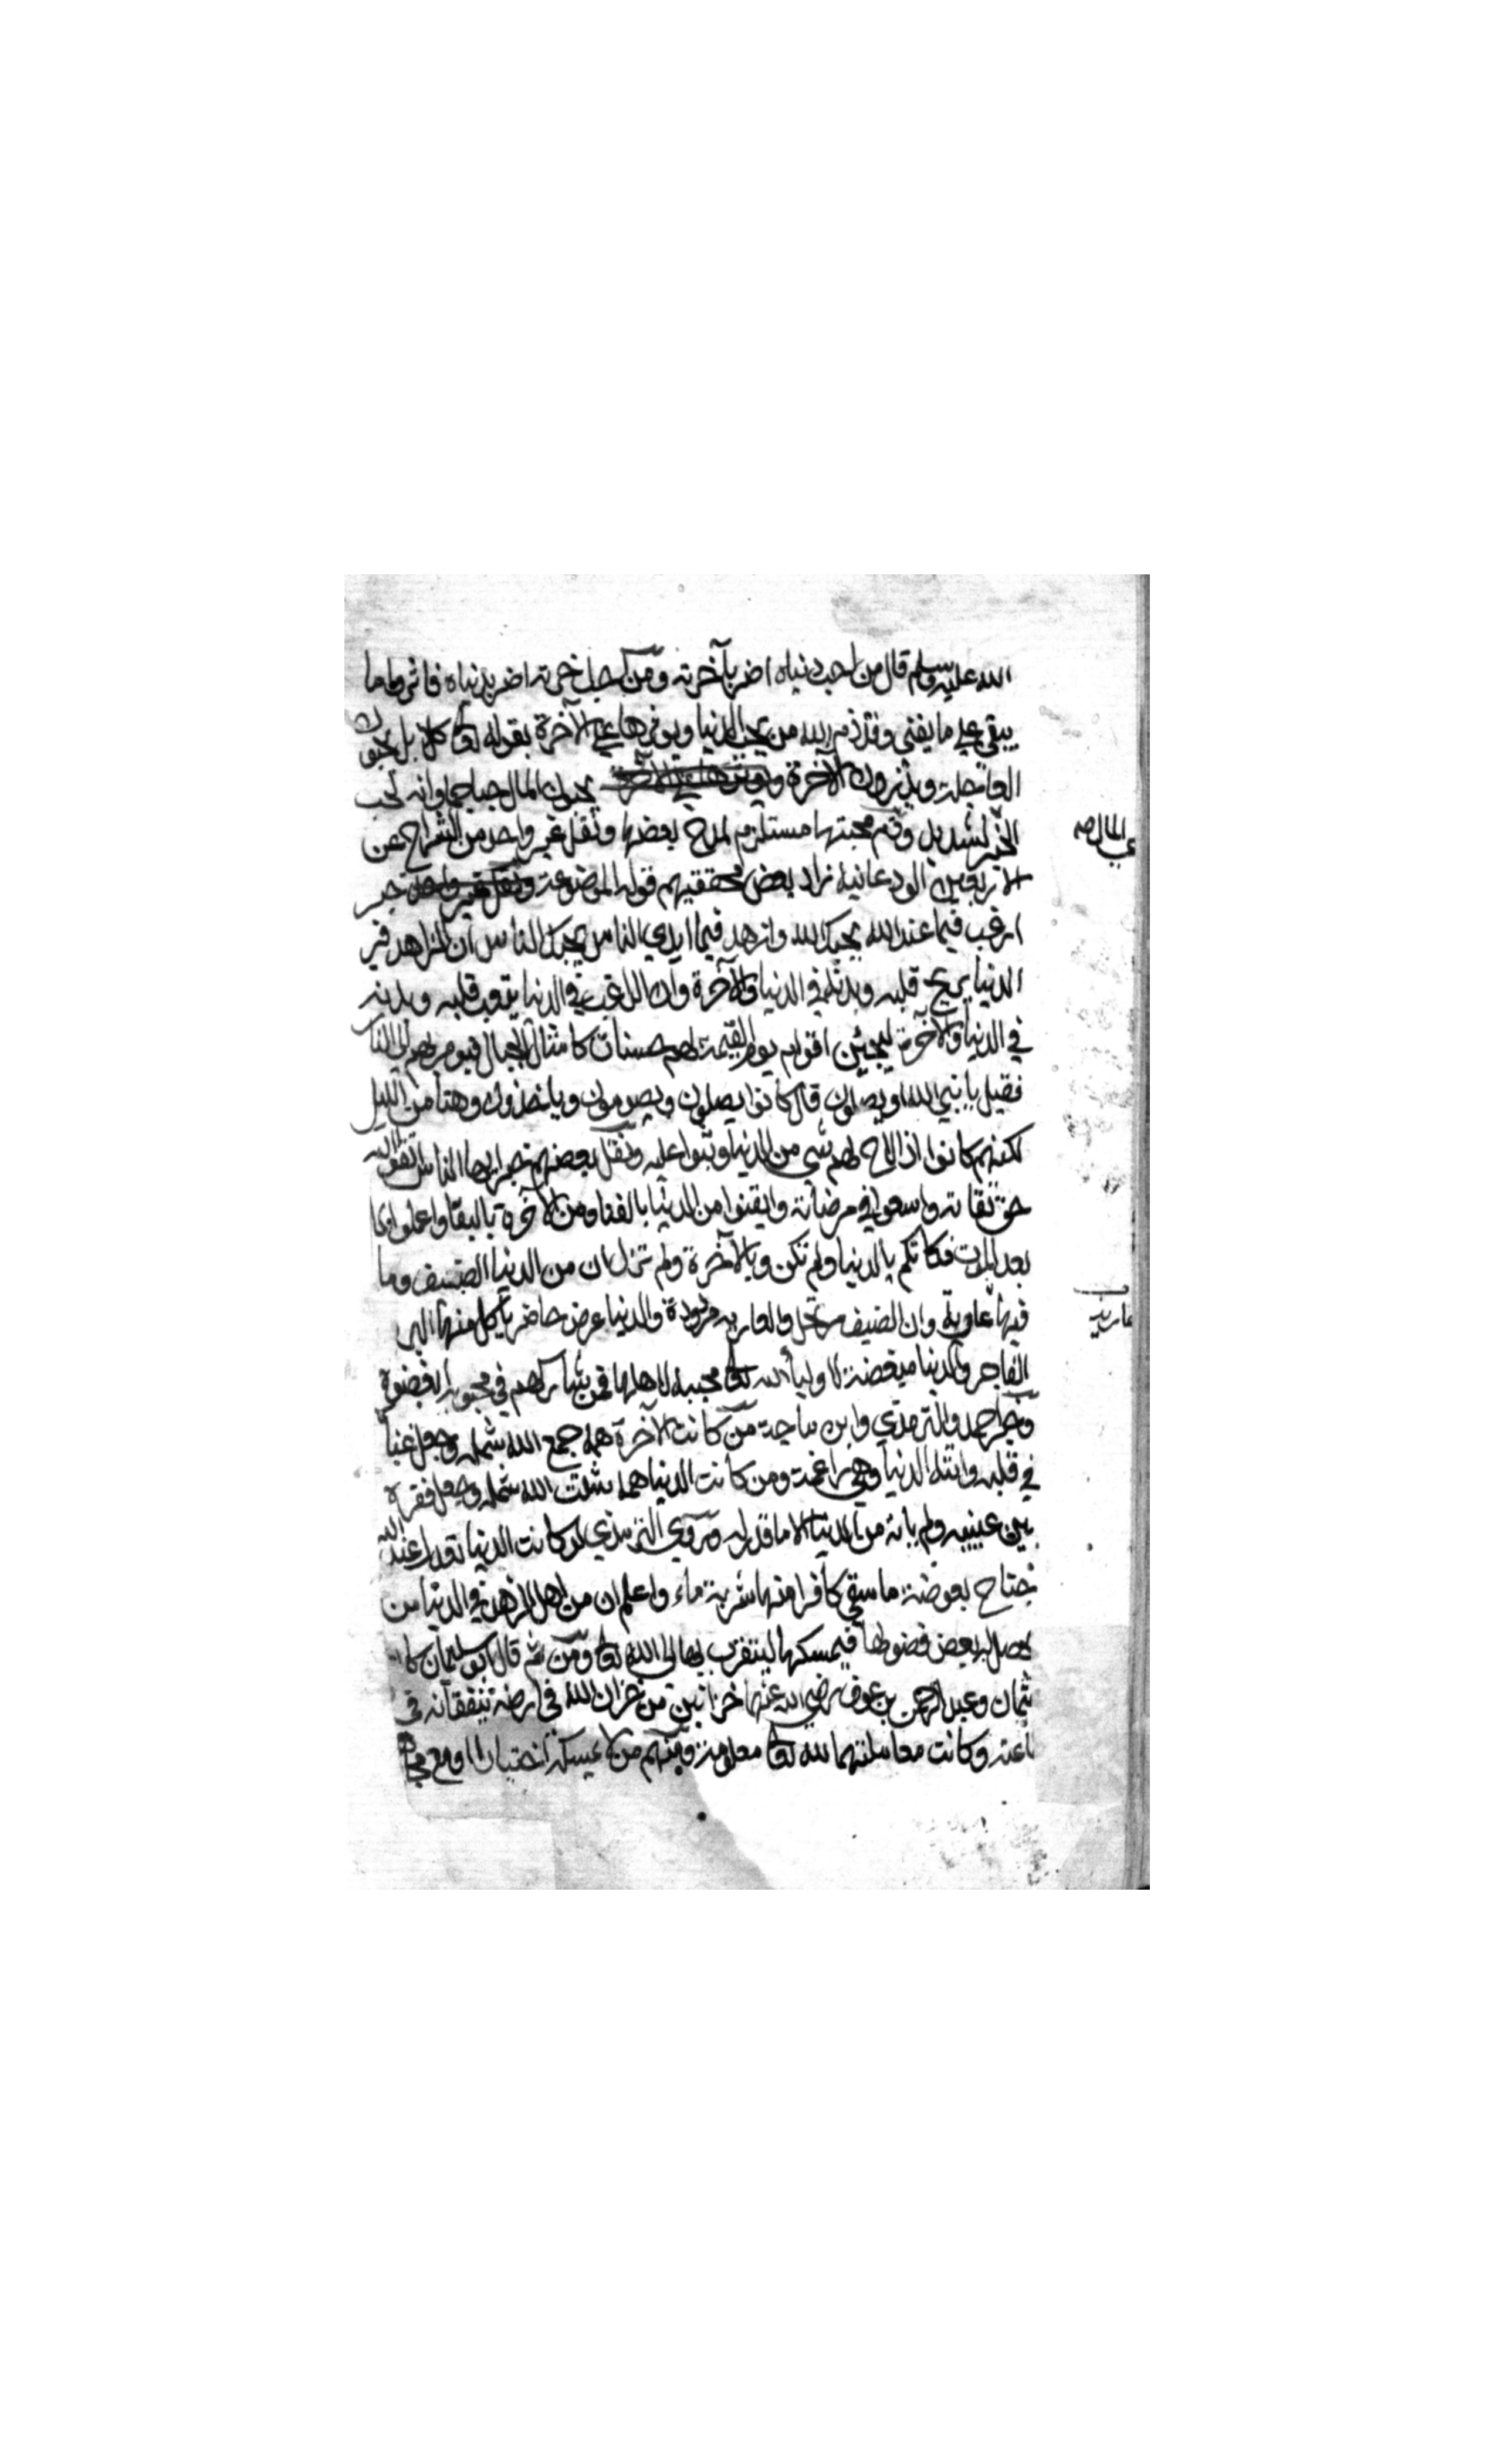 الله عليه وسلم قال من احب دنياه اضر بآخرته ومن احب اخرته اضر بدنياه فاثروا ما
يبقى على ما يفنى وقد ذم الله من يحب الدنيا ويوثرها على الآخرة بقوله تعا كلا بل تحبون
العاجلة وتذرون الآخرة ويحبون المال حبا جما وانه لحب
الخير لشديد وذم محبتها مستلزم لمدح بغضها ونقل غير واحد من الشراح عن
الاربعين الودعانية زاد بعض محققيهم قوله الموضوعة خبر
ارغب فيما عند الله يحبك الله وازهد فيما ايدي الناس يحبك الناس ان الزاهد في
الدنيا يريح قلبه وبدنه في الدنيا والآخرة وان الراغب في الدنيا يتعب قلبه وبدنه
في الدنيا والآخرة ليجيئن اقوام يوم القيمة لهم حسنات كامثال الجبال فيومر بهم الى النار
فقيل يا نبي الله او يصلون قال كانوا يصلون ويصومون وياخذون وهنا من الليل
لكنهم كانوا اذا لاح لهم شي من الدنيا وثبوا عليه ونقل بعضهم خبر ايها الناس اتقوا الله
حق تقاته واسعوا في مرضاته وايقنوا من الدنيا بالفنا ومن الآخرة بالبقا واعملوا لما
بعد الموت فكانكم بالدنيا ولم تكن وبالآخرة ولم تزل ان من الدنيا الضيف وما
فيها عارية وان الضيف مرتحل والعارية مردودة والدنيا عرض حاضر ياكل منها البر
الفاجر والدنيا مبغضة لاوليأ الله تعا محببة لاهلها فمن شاركهم في محبوبهم ابغضوه
وخبر احمد والترمذي وابن ماجة من كانت الآخرة همه جمع الله شمله وجعل غناه
في قلبه واتته الدنيا وهي راغمة ومن كانت الدنيا همه شتت الله شمله وجعل فقره
بين عينيه ولم ياته من الدنيا الا ما قدر له وروى الترمذي لو كانت الدنيا تعدل عند الله
جناح بعوضة ما سقى كافرا منها شربة ماء واعلم ان من اهل الزهد في الدنيا من
يحصل له بعض فضولها فيمسكها ليتقرب بها الى الله تعا ومن ثم قال ابو سليمان كان
عثمان وعبد الرحمن بن عوف رضي الله عنهما خزانين من خزان الله في ارضه ينفقانه في
طاعته وكانت معاملتهما لله تعا معلومة ومنهم من لا يمسكه اختيارا او مع
المال صح
عارية